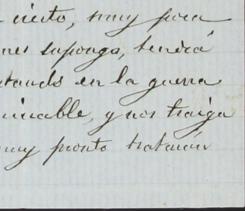 cierto, muy poca
nes supongo, tendrá
estando en la guerra
minable, y nos traiga
muy pronto tratarán